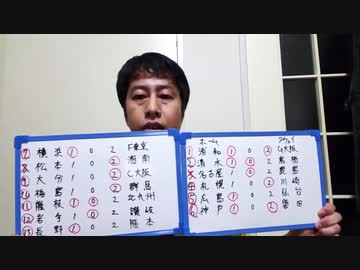 ⑦ 横浜 1 0 2 F東京
⑧ 松本 1 0 2 湘南
⑨ 大分 1 0 2 C大阪
福島 1 0 2 群馬
⑪ 藤枝 1 0 2 北九州
⑫ 岩手 1 0 2 讃岐
⑬ 長野 1 0 2 熊本
ホーム
① 浦和 1 0 2 G大阪
② 清水 1 0 2 鳥栖
名古屋 1 0 2 鹿島
札幌 1 0 2 川崎
⑤ 広島 1 0 2 仙台
⑥ 神戸 1 0 2 磐田